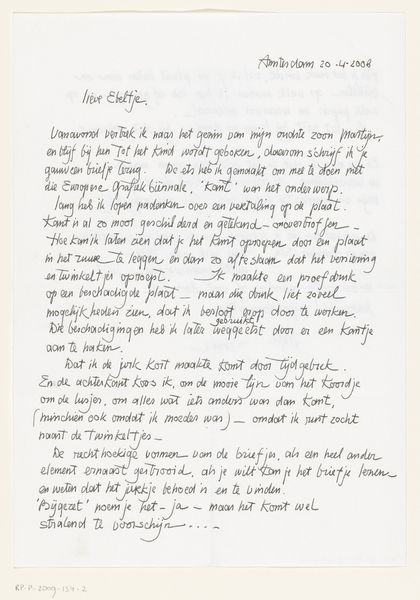 Amsterdam 20-4-2008
lieve Ebeltje.
Vanavond vertrek ik naar het gezin van mijn oudste zoon Martijn,
en blijf bij hen tot het kind wordt geboren, daarom schrijf ik je
gauw een briefje terug. De ets heb ik gemaakt om mee te doen met
die Europese Grafiekbiënnale, 'Kant' was het onderwerp.
lang heb ik lopen nadenken over een vertaling op de plaat.
Kant is al zo mooi geschilderd en getekend - onovertroffen -
Hoe kan ik laten zien dat je het kant oproepen door een plaat
in het zuur te leggen en dan zo af te staan dat het versiering
en twinkeltjes oproept. Ik maakte een proefdruk
op een beschadigde plaat - maar die druk liet zoveel
mogelijkheden zien, dat ik besloot erop door te werken.
Die beschadigingen heb ik later gebruikt weggeetst door er een kantje
aan te haken.
Dat ik de jurk kort maakte komt door tijdgebrek.
En de achterkant koos ik, om de mooie lijn van het koordje
om de lusjes, om alles wat iets anders was dan kant,
(misschien ook omdat ik moeder was) - omdat ik rust zocht
naast de twinkeltjes -
De rechthoekige vormen van de briefjes, als een heel ander
element ernaast gestrooid, als je wilt kan je het briefje lezen
en weten dat het jurkje behoed is en te vinden.
'Bijgezet' noem je het - ja - maar het komt wel
stralend te voorschijn ....
RP-P-2009-134-2